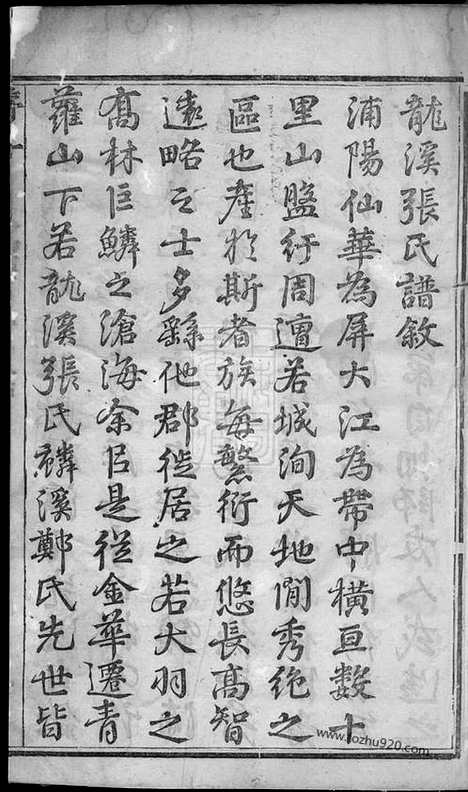 龍溪張氏譜敘
浦陽仙華為屏大江為帶中橫亘數十
里山盤紆周邅若城洵天地間秀絕之
區也產於斯者族每蕃衍而悠長高智
遠略之士多繇他郡徙居之若大羽之
高林巨鱗之滄海余㠯是從金華遷青
蘿山下若龍溪張氏麟溪鄭氏先世皆
www.tozhu920.com